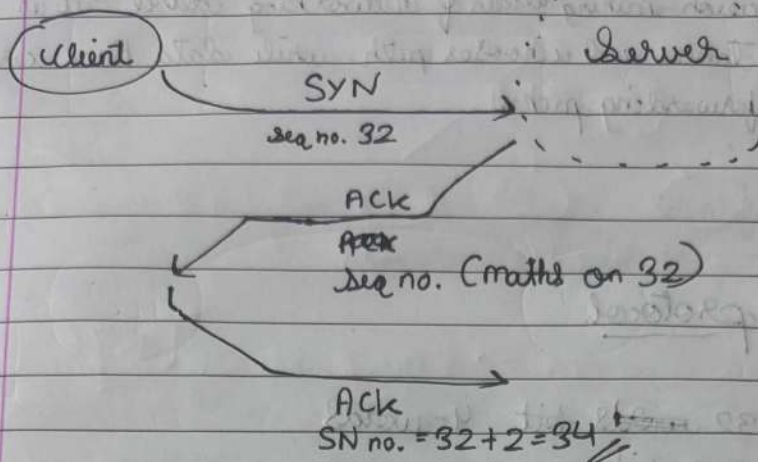 Client Server
SYN
seq no. 32
ACK
seq no. (maths on 32)
ACK
SN no. = 32+2 = 34